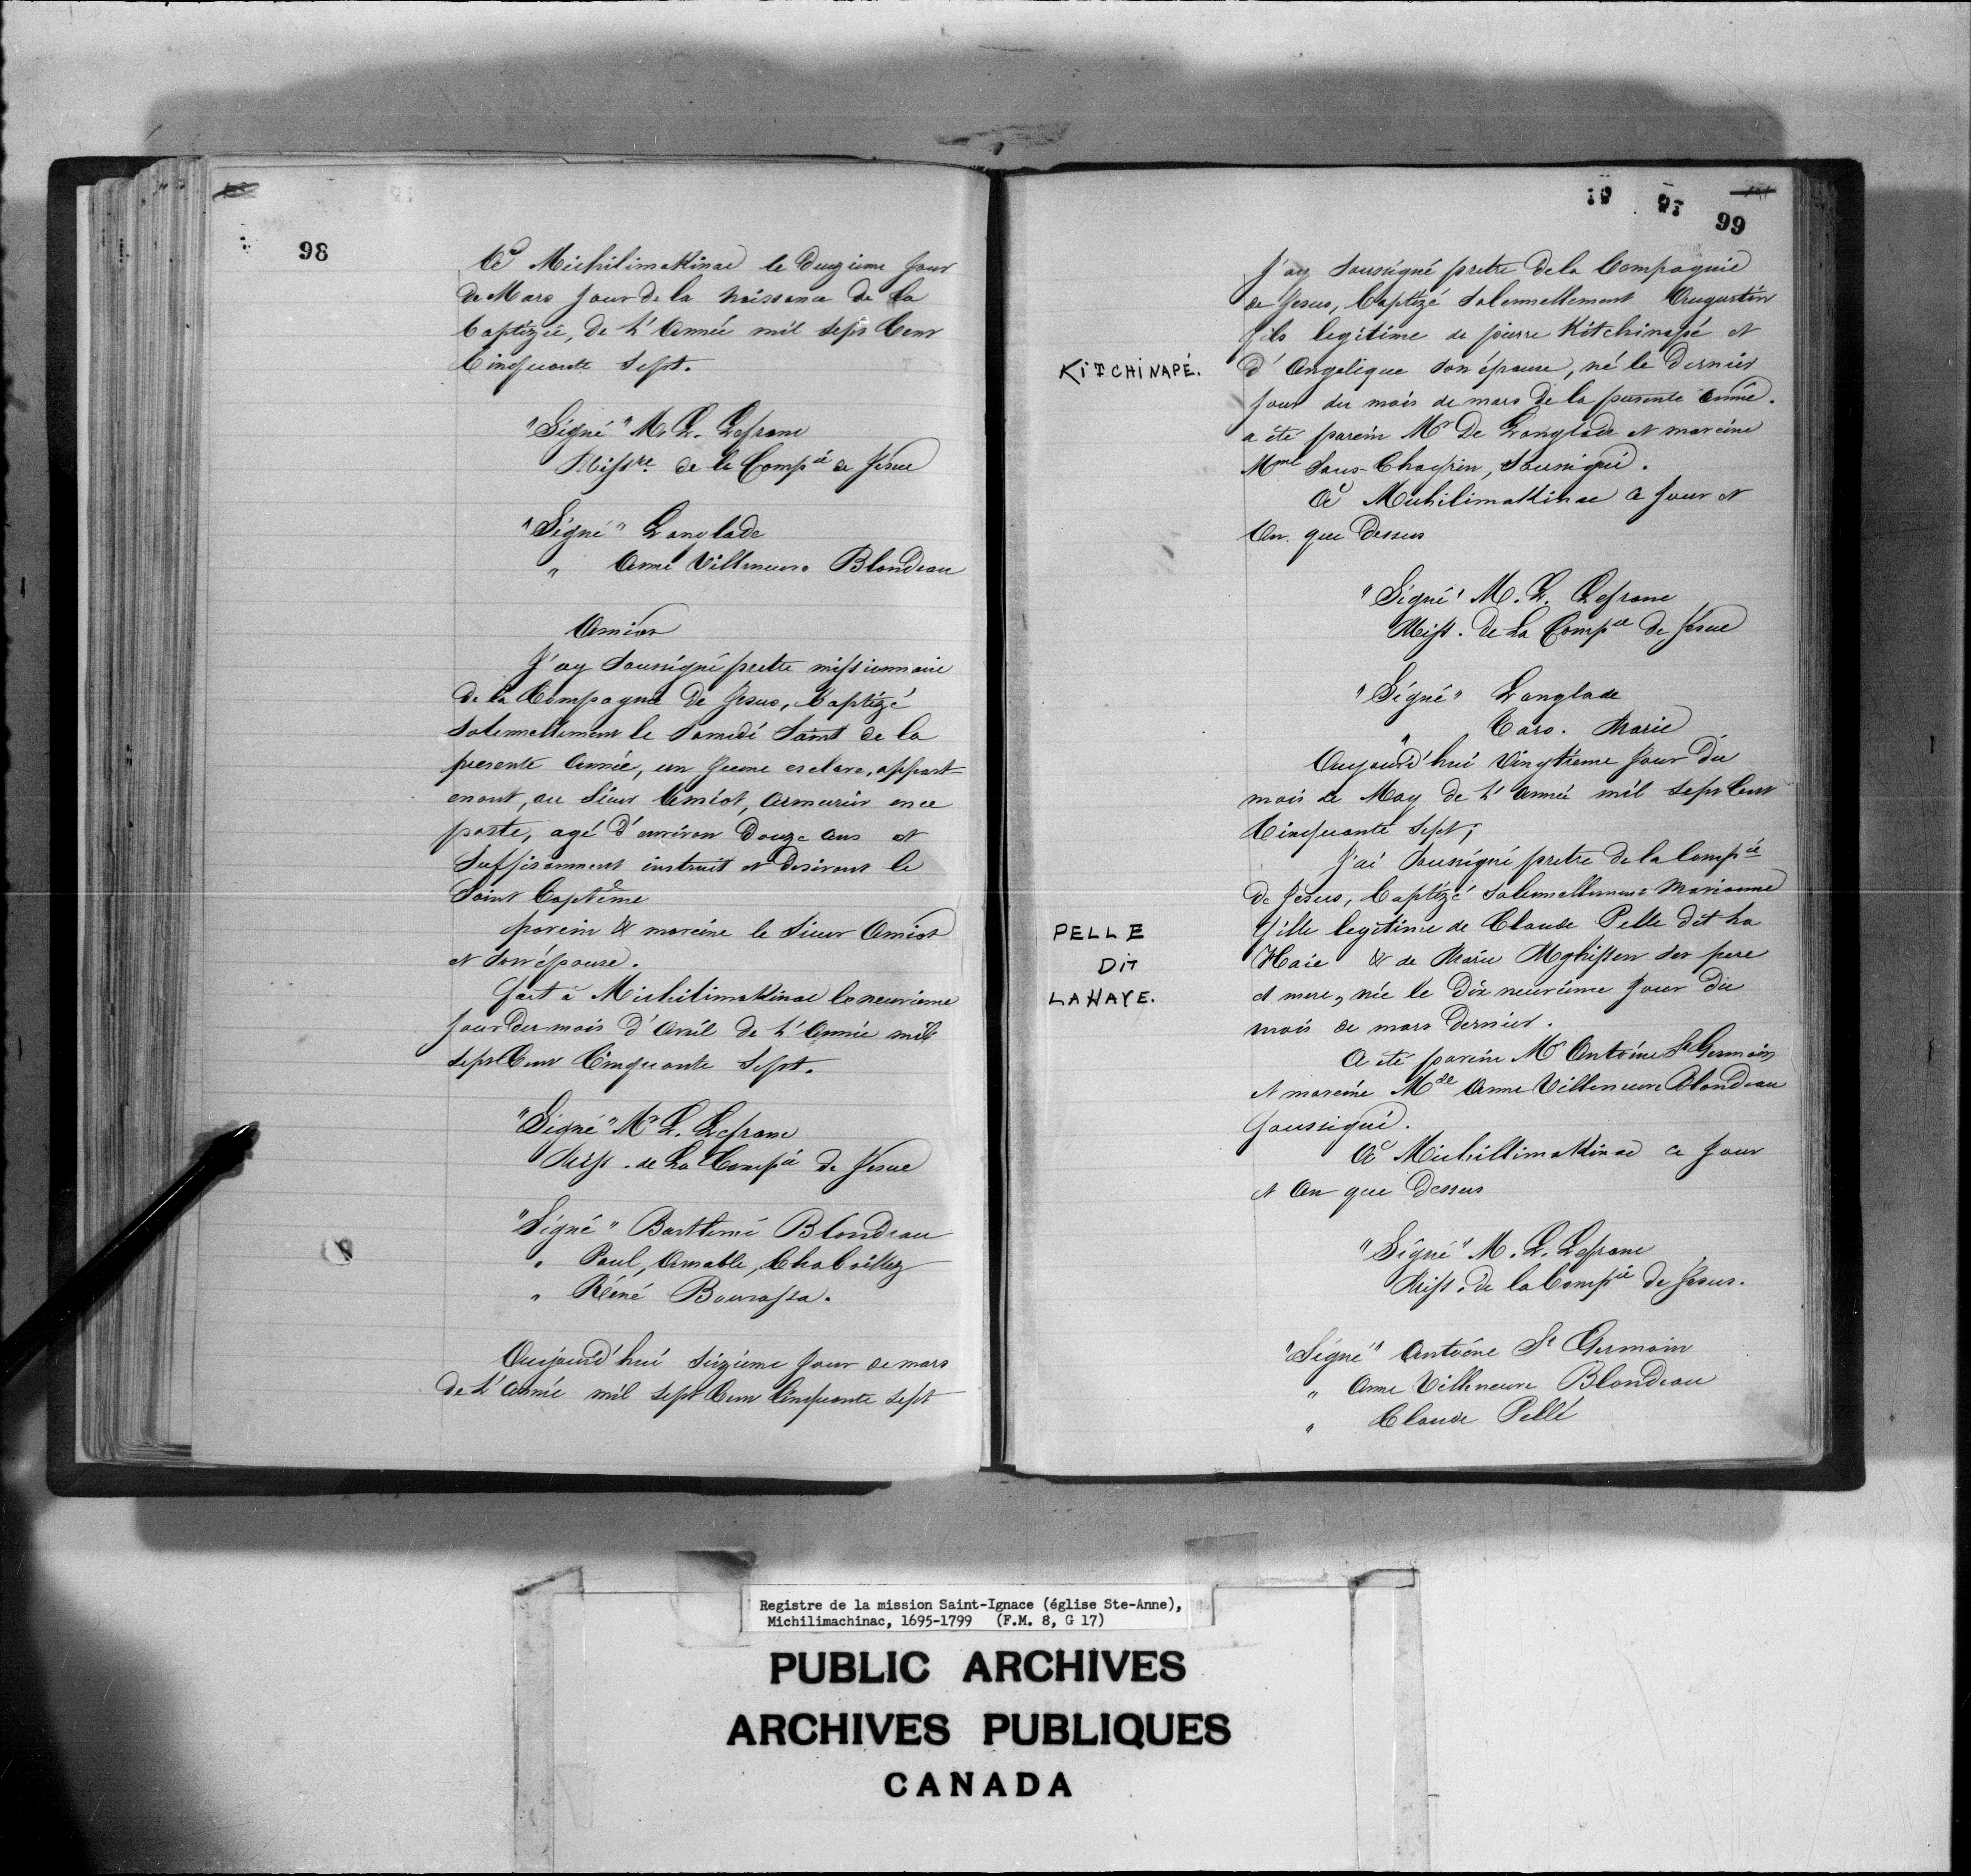 98
A Michilimakinac le Deuzieme jour
de Mars jour de la naissance de la
baptizée, de L'Année mil sept Cent
Cinquante Sept.
"Signé" M. L. Lefranc
Missre de la Compie de Jesus
"Signé" Langlade
" Anne Villeneuve Blondeau
Amiot
J'ay soussigné pretre missionnaire
de la Compagnie De Jesus, baptizé
solemnellement le Samedi Saint de la
presente Année, un jeune esclave, appart=
enant, au Sieur Amiot, Armurier en ce
poste, agé d'environ Douze ans et
Suffisamment instruit et desirant le
Saint Baptême
parein & mareine le Sieur Amiot
et son épouse.
fait a Michilimakinac le neuvieme
jour du mois d'Avril de L'Année mil
sept Cent Cinquante Sept.
"Signé" M. L. Lefranc
Miss. de La Compie de Jesus
"Signé" Barthemi Blondeau
" Paul, Amable, Chaboillez
" Réné Bourassa.
Aujourd'hui seizieme jour de mars
de L'Année mil sept Cent Cinquante sept
99
J'ay soussigné pretre de la Compagnie
de Jesus, baptizé solemnellement Augustin
fils legitime de pierre Kitchinapé et
KITCHINAPÉ.
d'Angelique son épouse, né le Dernier
jour du mois de mars de la presente Année.
a été parein Mr De Langlade et mareine
Mme Sans-Chagrin, soussigné.
A Michilimakinac ce jour et
An que Dessus
"Signé" M. L. Lefranc
Miss. de La Compie de Jesus
"Signé" Langlade
" Caro. Marie
Aujourd'hui Vingtieme jour du
mois de May de L'Année mil sept Cent
Cinquante Sept;
J'ai soussigné pretre de la Compie
de Jesus, baptizé solemnellement Marianne
PELLE
fille legitime de Claude Pelle dit La
DIT
Haie & de Marie Mghissen ses pere
LAHAYE.
et mere, née le Dix neuvieme jour du
mois de mars Dernier.
A été parein Mr Antoine St Germain
et mareine Mde Anne Villeneuve Blondeau
soussigné.
A Michillimakinac ce jour
et An que Dessus
"Signé" M. L. Lefranc
Miss. de la Compie de Jesus.
"Signé" Antoine St Germain
" Anne Villeneuve Blondeau
" Claude Pellé
Registre de la mission Saint-Ignace (église Ste-Anne),
Michilimachinac, 1695-1799 (F.M. 8, G 17)
PUBLIC ARCHIVES
ARCHIVES PUBLIQUES
CANADA